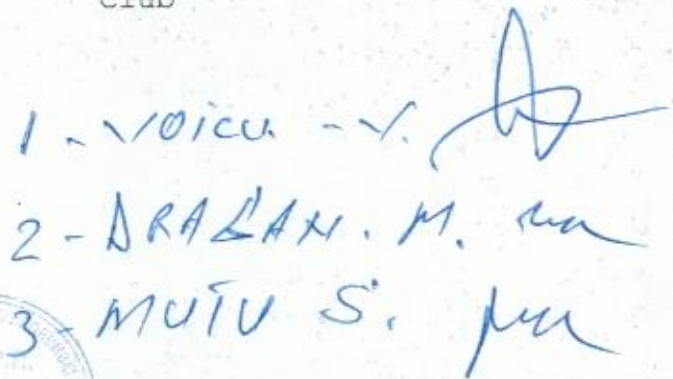 club
1 - VOICU - V.
2 - DRAGAN. M.
3 - MUTU S.